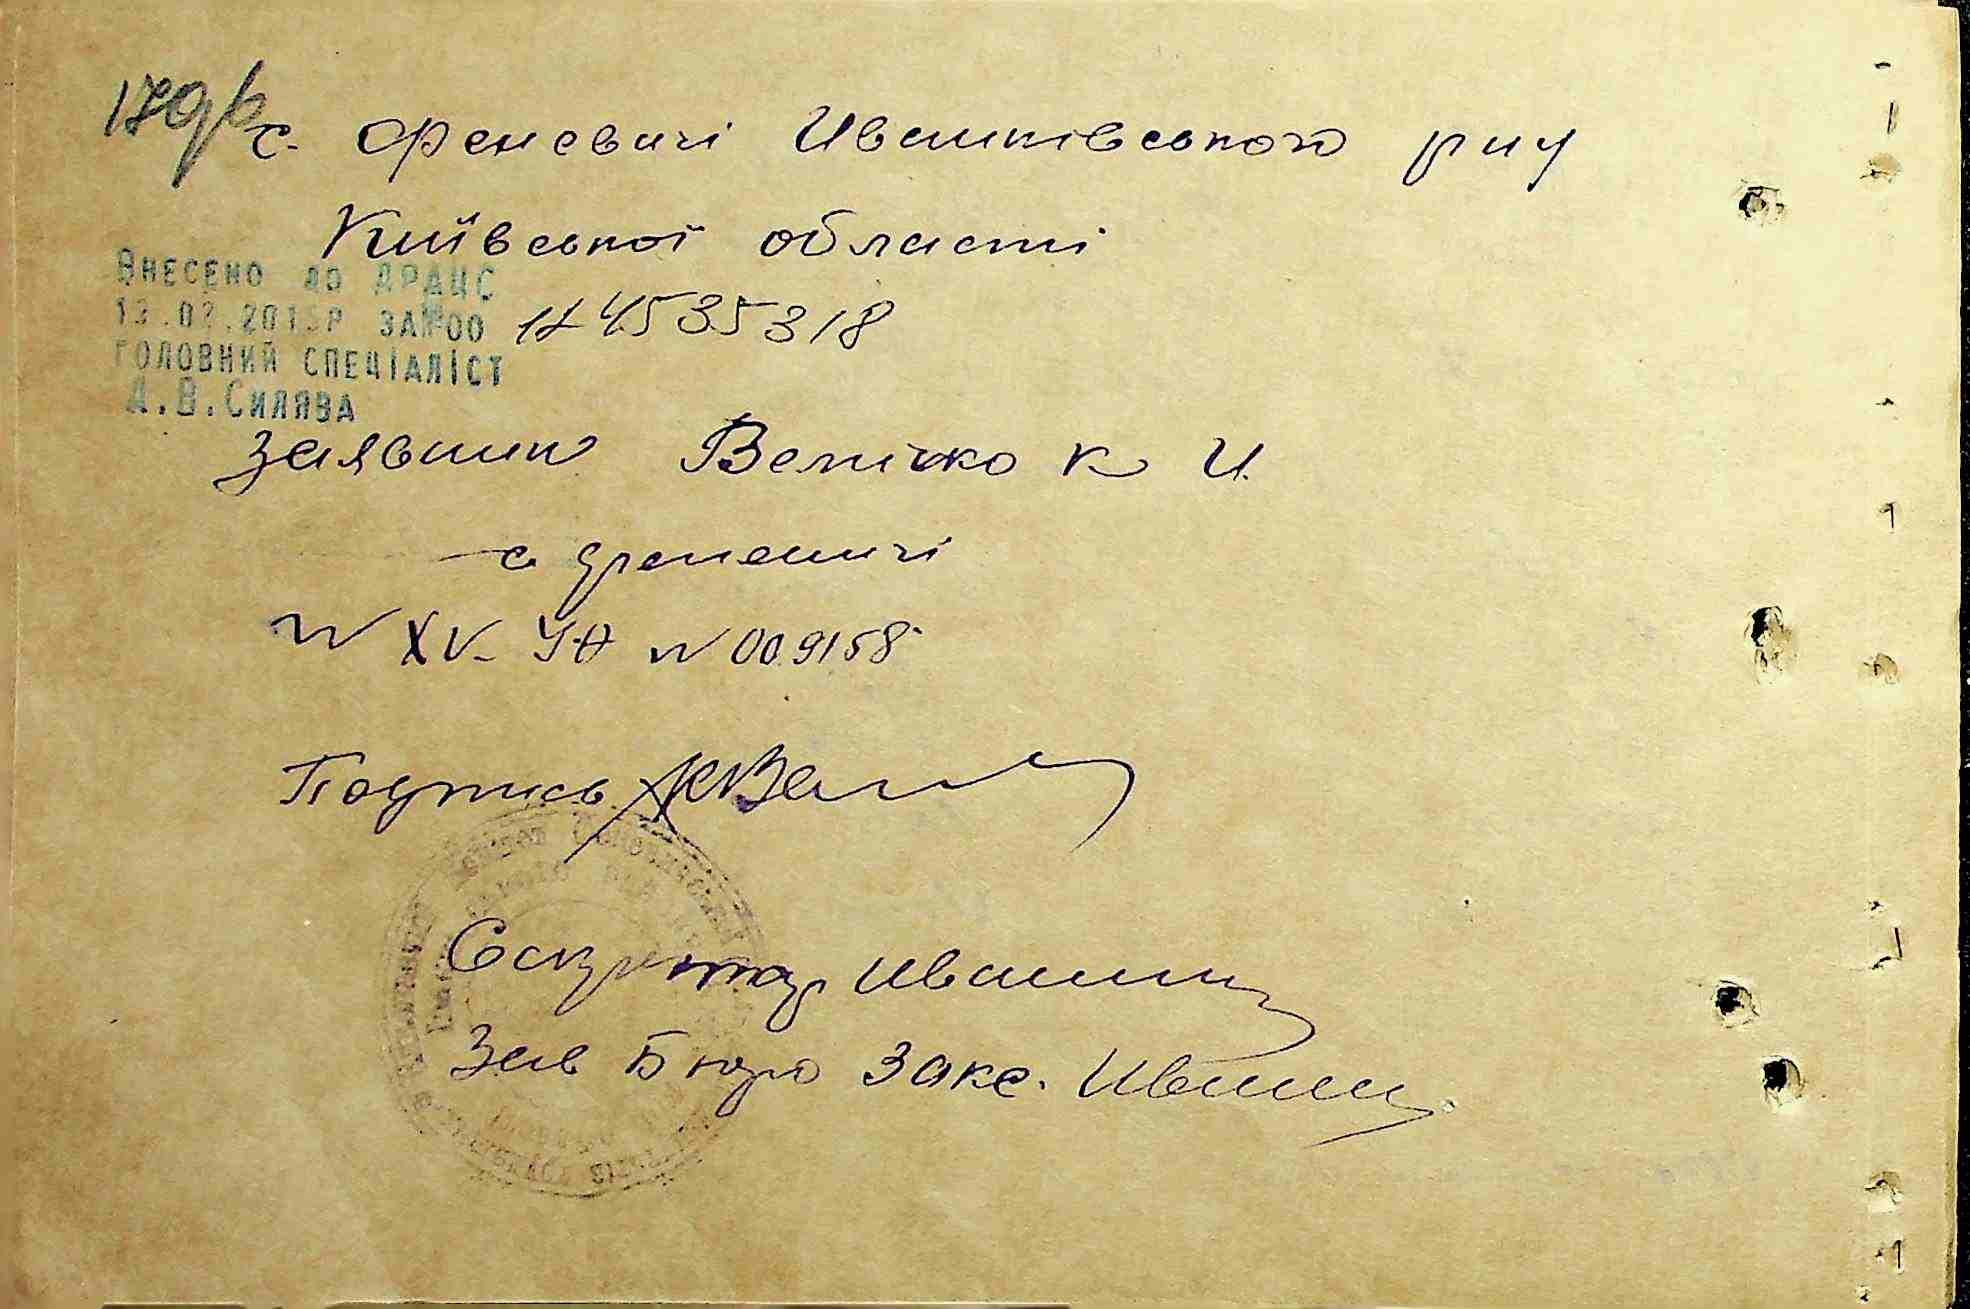 179б
с. Феневичі Иванківського р-ну
Київської області
Внесено до ДРАЦС
13.02.2015р за №00 144535318
Головний спеціаліст
А.В.Силява
Заявник Величко К И.
с Феневичі
№ XV-УН № 009158
Подпись КВел
Секретар
Зав Бюро Загс.